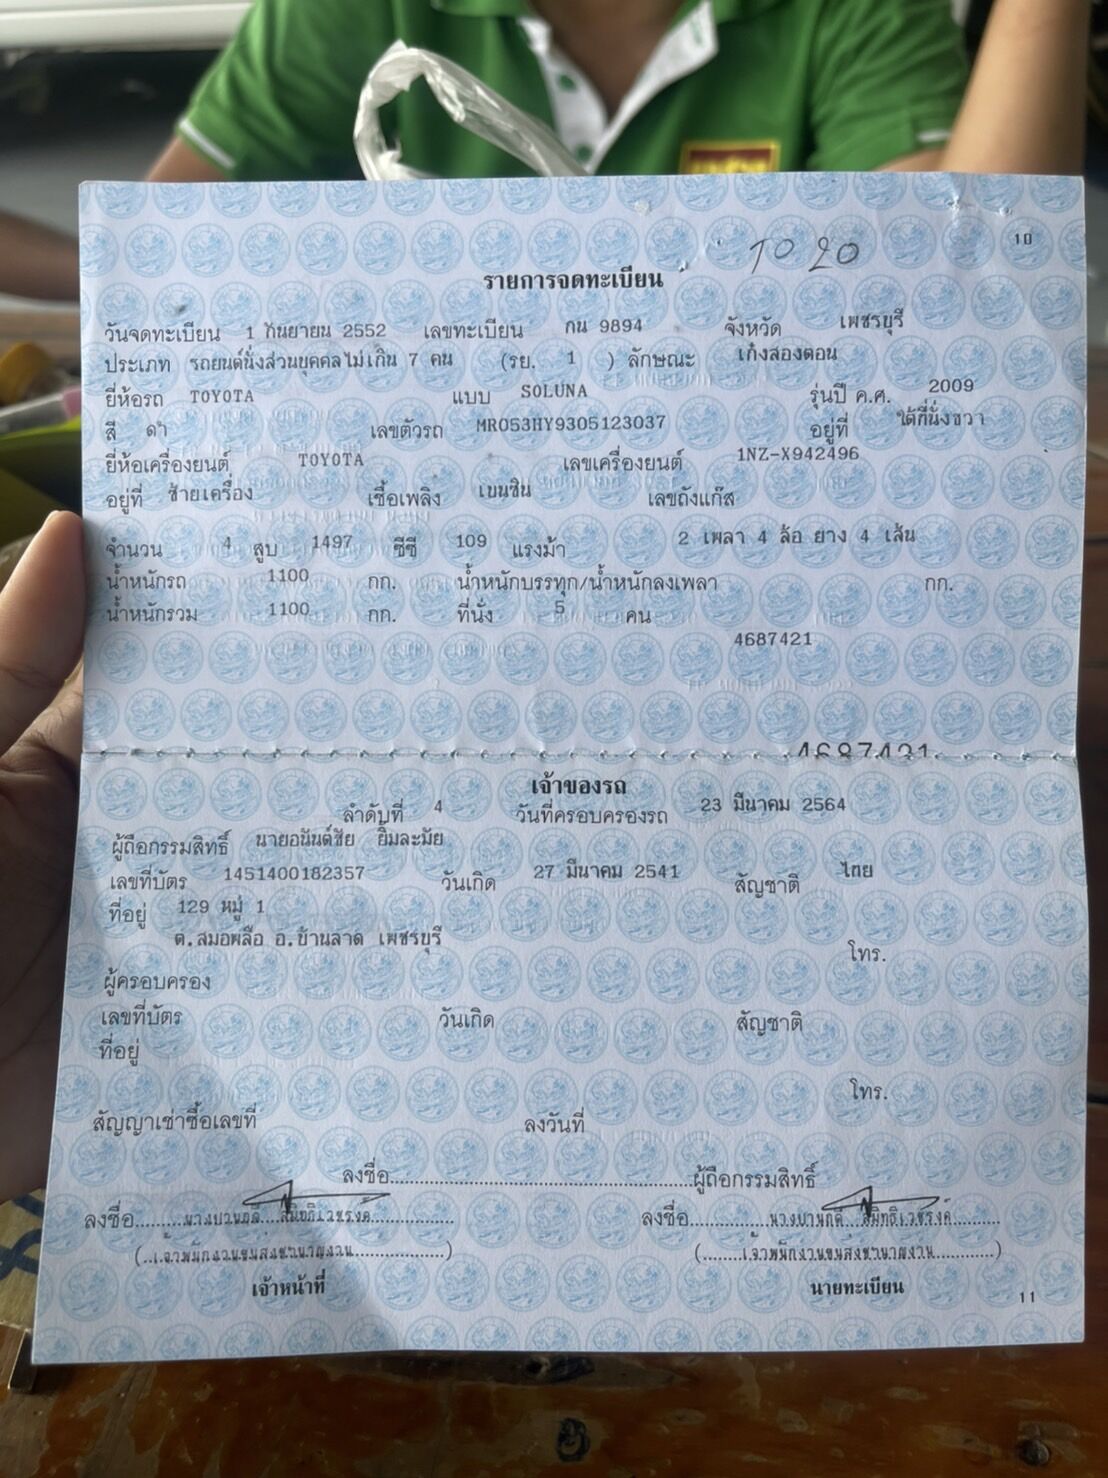 10
TO 20
รายการจดทะเบียน
วันจดทะเบียน 1 กันยายน 2552 เลขทะเบียน กน 9894 จังหวัด เพชรบุรี
ประเภท รถยนต์นั่งส่วนบุคคลไม่เกิน 7 คน (รย. 1 ) ลักษณะ เก๋งสองตอน
ยี่ห้อรถ TOYOTA แบบ SOLUNA รุ่นปี ค.ศ. 2009
สี ดำ เลขตัวรถ MR053HY9305123037 อยู่ที่ ใต้ที่นั่งขวา
ยี่ห้อเครื่องยนต์ TOYOTA เลขเครื่องยนต์ 1NZ-X942496
อยู่ที่ ซ้ายเครื่อง เชื้อเพลิง เบนซิน เลขถังแก๊ส
จำนวน 4 สูบ 1497 ซีซี 109 แรงม้า 2 เพลา 4 ล้อ ยาง 4 เส้น
น้ำหนักรถ 1100 กก. น้ำหนักบรรทุก/น้ำหนักลงเพลา กก.
น้ำหนักรวม 1100 กก. ที่นั่ง 5 คน
4687421
4687421
เจ้าของรถ
ลำดับที่ 4 วันที่ครอบครองรถ 23 มีนาคม 2564
ผู้ถือกรรมสิทธิ์ นายอนันต์ชัย ยิ้มละมัย
เลขที่บัตร 1451400182357 วันเกิด 27 มีนาคม 2541 สัญชาติ ไทย
ที่อยู่ 129 หมู่ 1
ต.สมอพลือ อ.บ้านลาด เพชรบุรี
โทร.
ผู้ครอบครอง
เลขที่บัตร วันเกิด สัญชาติ
ที่อยู่
โทร.
สัญญาเช่าซื้อเลขที่ ลงวันที่
ลงชื่อ ผู้ถือกรรมสิทธิ์
ลงชื่อ ลงชื่อ
(เจ้าพนักงานขนส่งชำนาญงาน) (เจ้าพนักงานขนส่งชำนาญงาน)
เจ้าหน้าที่ นายทะเบียน
11